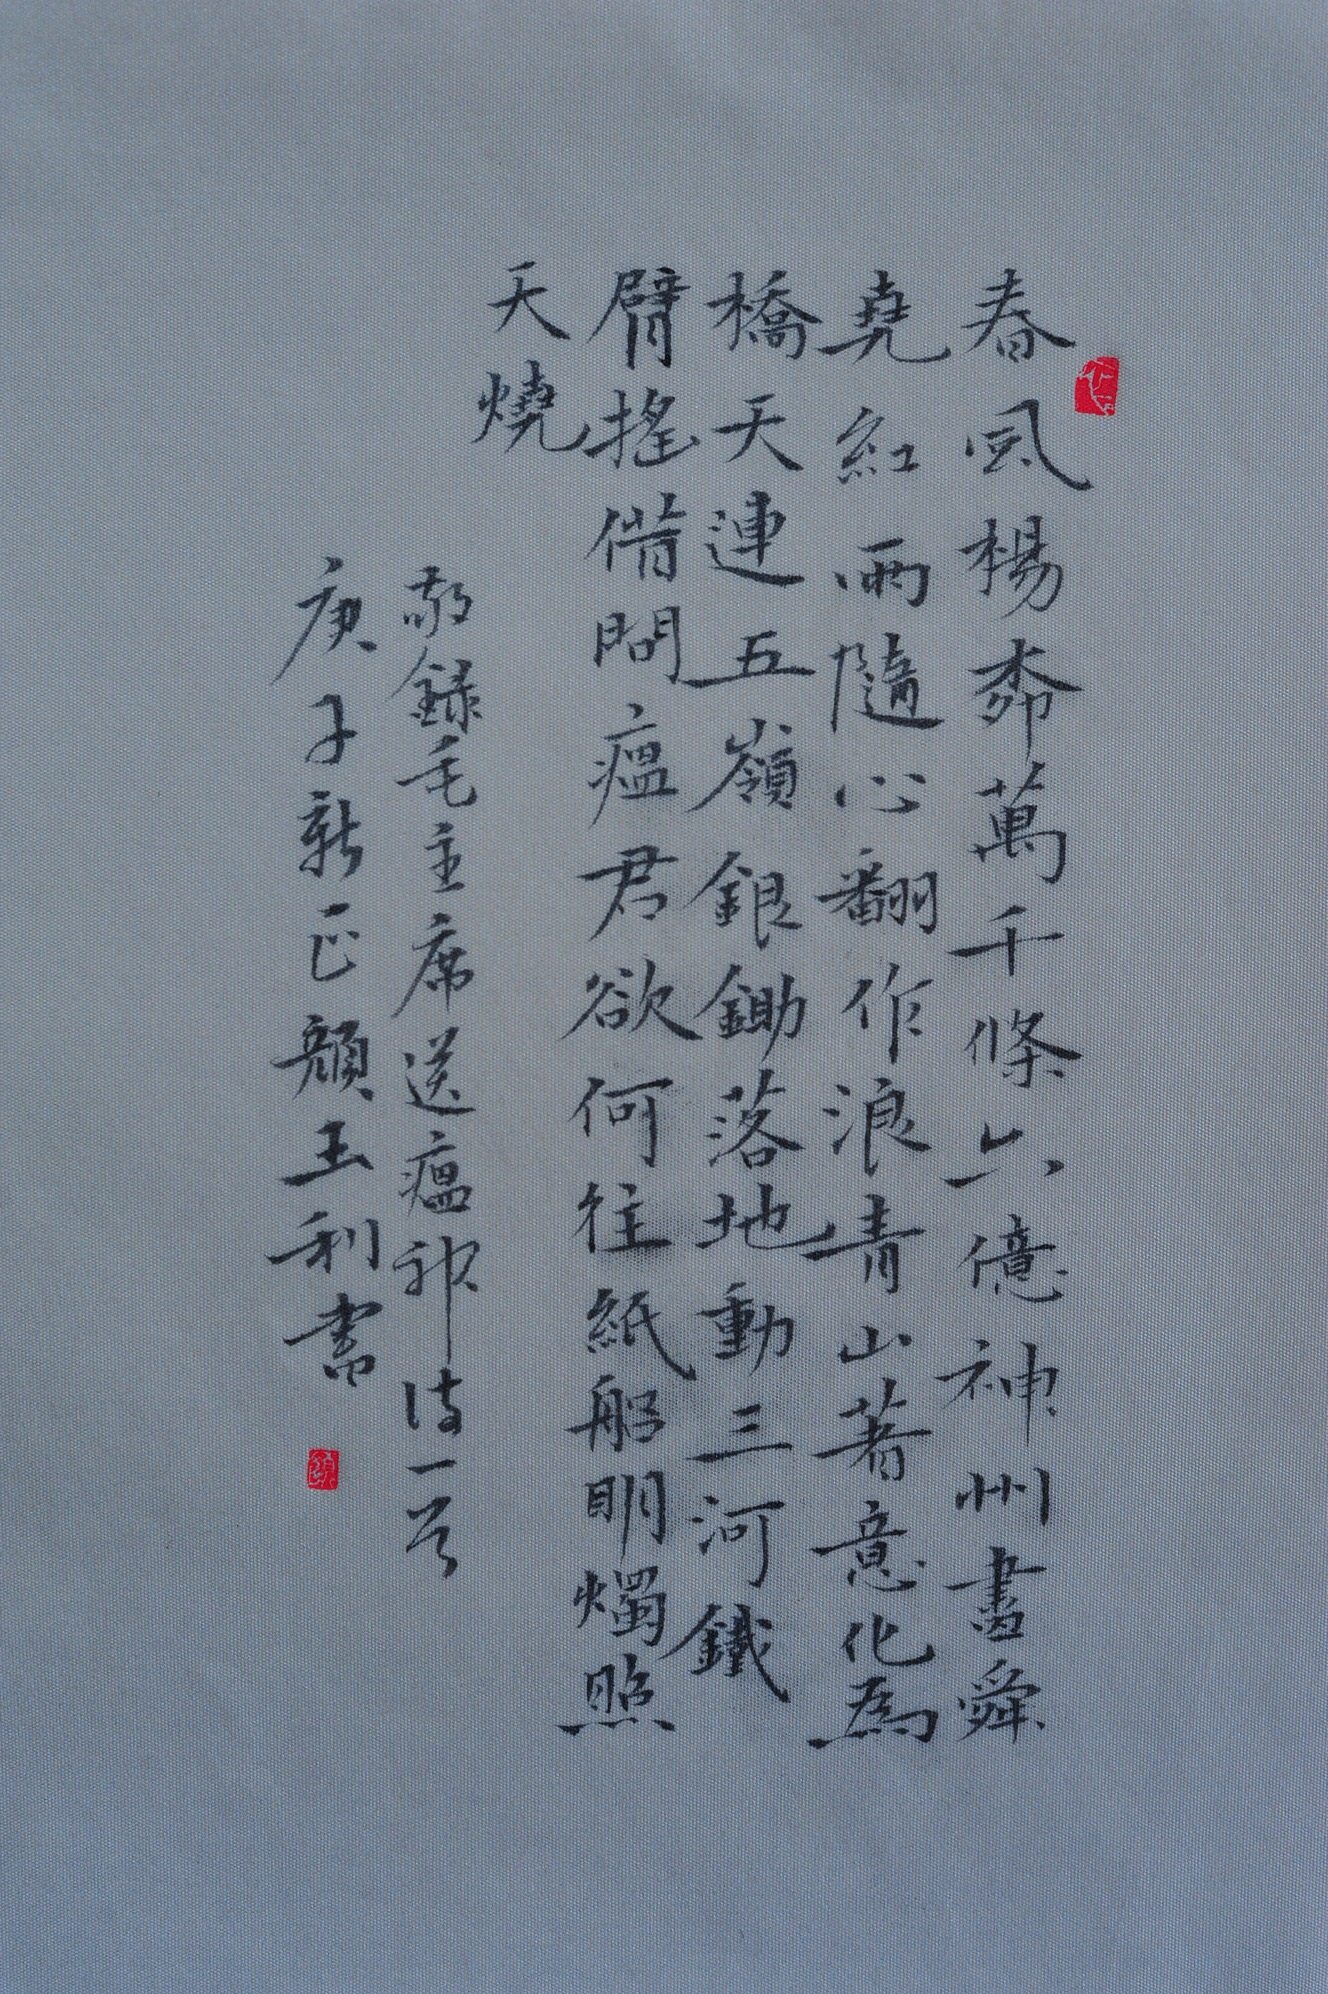 春風楊柳萬千條六億神州盡舜
堯紅雨隨心翻作浪青山著意化為
橋天連五嶺銀鋤落地動三河鐵
臂搖借問瘟君欲何往紙船明燭照
天燒
敬錄毛主席送瘟神詩一首
庚子新正顏玉利書